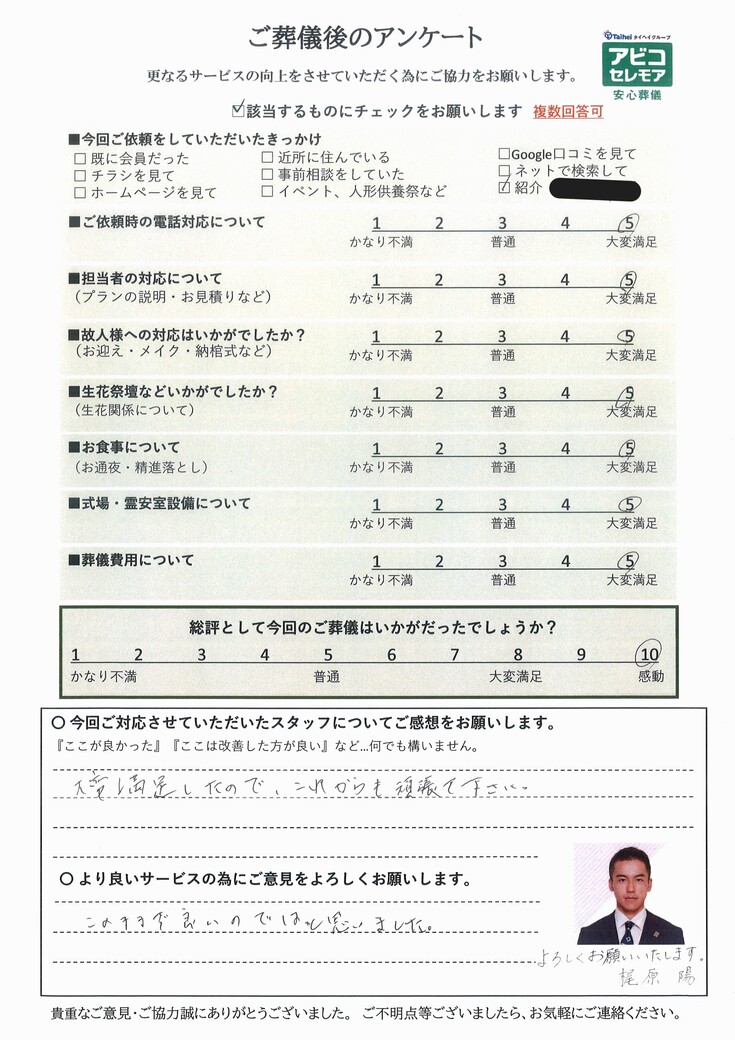 ご葬儀後のアンケート
Taihei タイヘイグループ
アビコ
セレモア
安心葬儀
更なるサービスの向上をさせていただく為にご協力をお願いします。
☑該当するものにチェックをお願いします 複数回答可
■今回ご依頼をしていただいたきっかけ
□ 既に会員だった □ 近所に住んでいる □Google口コミを見て
□ チラシを見て □ 事前相談をしていた □ ネットで検索して
□ ホームページを見て □ イベント、人形供養祭など ☑ 紹介
■ご依頼時の電話対応について 1 2 3 4 5
かなり不満 普通 大変満足
■担当者の対応について 1 2 3 4 5
（プランの説明・お見積りなど） かなり不満 普通 大変満足
■故人様への対応はいかがでしたか？ 1 2 3 4 5
（お迎え・メイク・納棺式など） かなり不満 普通 大変満足
■生花祭壇などいかがでしたか？ 1 2 3 4 5
（生花関係について） かなり不満 普通 大変満足
■お食事について 1 2 3 4 5
（お通夜・精進落とし） かなり不満 普通 大変満足
■式場・霊安室設備について 1 2 3 4 5
かなり不満 普通 大変満足
■葬儀費用について 1 2 3 4 5
かなり不満 普通 大変満足
総評として今回のご葬儀はいかがだったでしょうか？
1 2 3 4 5 6 7 8 9 10
かなり不満 普通 大変満足 感動
〇 今回ご対応させていただいたスタッフについてご感想をお願いします。
『ここが良かった』『ここは改善した方が良い』など…何でも構いません。
大変満足したので、これからも頑張って下さい。
〇 より良いサービスの為にご意見をよろしくお願いします。
このままで良いのではと思いました。
よろしくお願いいたします。
梶原 陽
貴重なご意見・ご協力誠にありがとうございました。 ご不明点等ございましたら、お気軽にご連絡ください。